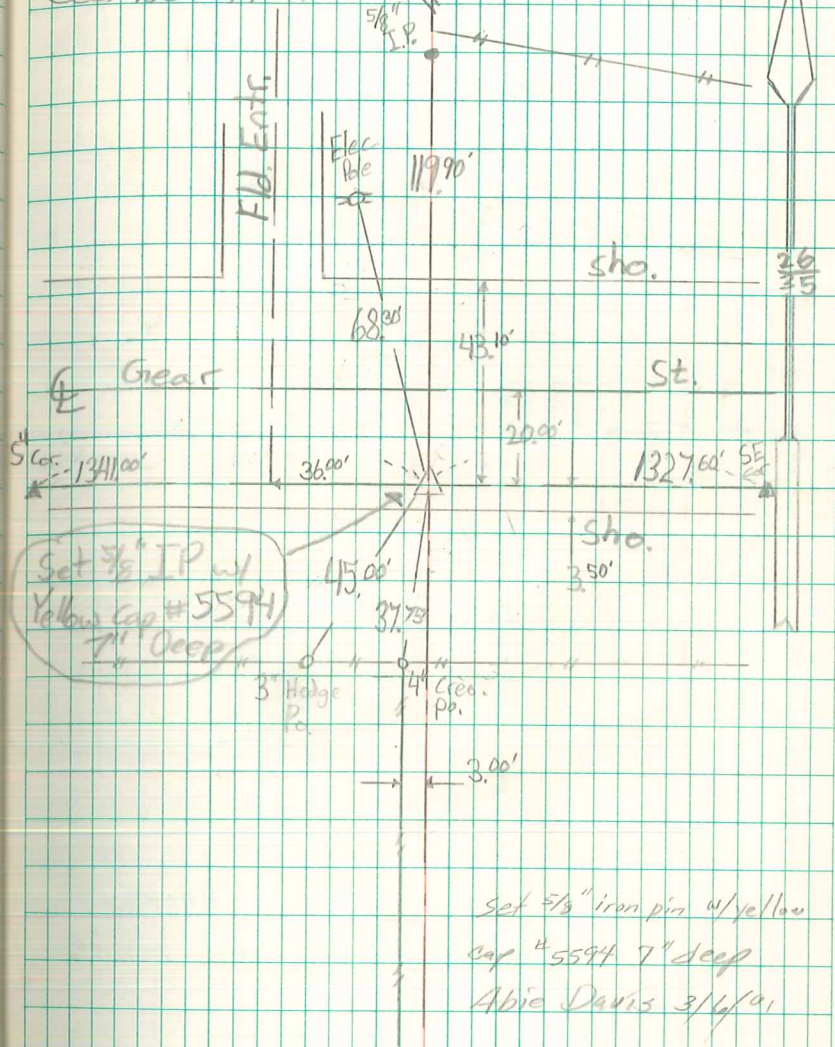 5/8"
I.P.
Fld. Entr.
Elec
Pole
119.90'
sho.
26
35
68.30'
43.10'
℄ Gear St.
20.00'
Cor. 1341.00'
36.00'
1327.60'
Sho.
3.50'
Set 5/8" IP w/
Yellow Cap # 5594
7" Deep
45.00'
37.75'
3" Hedge
Po.
4" Creo.
Po.
3.00'
Set 5/8" iron pin w/ yellow
cap #5594 7" deep
Abie Davis